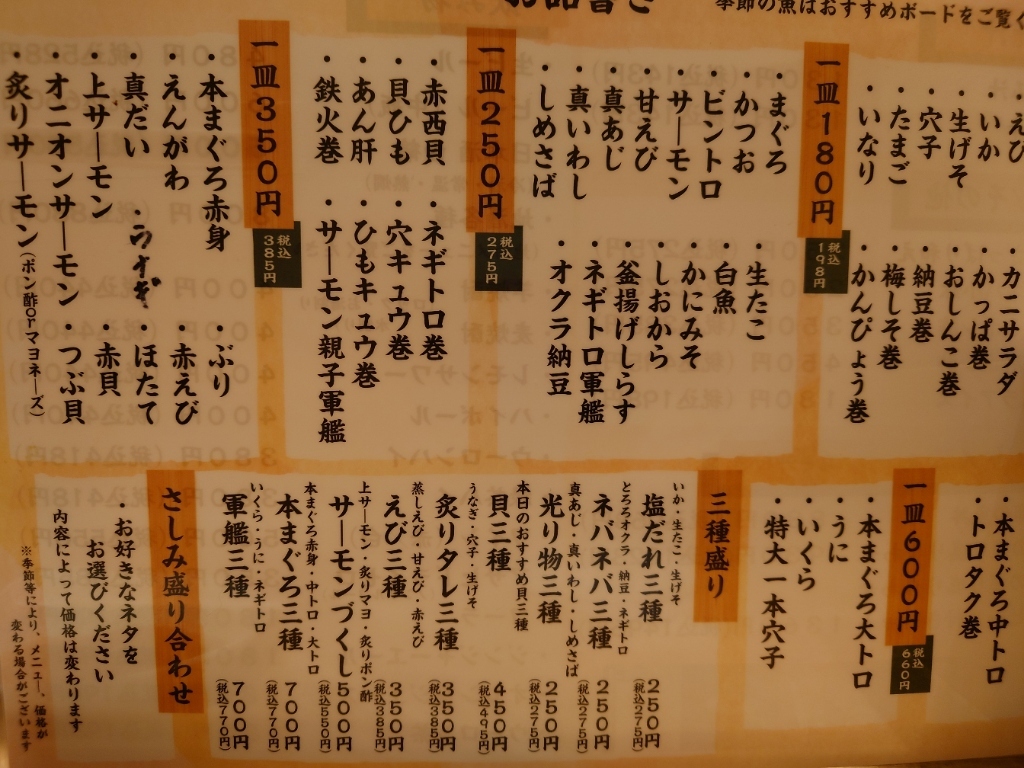 お品書き
季節の魚はおすすめボードをご覧く
・えび
・いか
・生げそ
・穴子
・たまご
・いなり
・カニサラダ
・かっぱ巻
・おしんこ巻
・納豆巻
・梅しそ巻
・かんぴょう巻
一皿180円
税込
198円
・まぐろ
・かつお
・ビントロ
・サーモン
・甘えび
・真あじ
・真いわし
・しめさば
・生たこ
・白魚
・かにみそ
・しおから
・釜揚げしらす
・ネギトロ軍艦
・オクラ納豆
一皿250円
税込
275円
・赤西貝
・貝ひも
・あん肝
・鉄火巻
・ネギトロ巻
・穴キュウ巻
・ひもキュウ巻
・サーモン親子軍艦
一皿350円
税込
385円
・本まぐろ赤身
・えんがわ
・真だい
・上サーモン
・オニオンサーモン
・炙りサーモン(ポン酢orマヨネーズ)
・ぶり
・赤えび
・ほたて
・赤貝
・つぶ貝
・本まぐろ中トロ
・トロタク巻
一皿600円
税込
660円
・本まぐろ大トロ
・うに
・いくら
・特大一本穴子
三種盛り
いか・生たこ・生げそ
塩だれ三種 250円(税込275円)
とろろオクラ・納豆・ネギトロ
ネバネバ三種 250円(税込275円)
真あじ・真いわし・しめさば
光り物三種 250円(税込275円)
本日のおすすめ貝三種
貝三種 450円(税込495円)
うなぎ・穴子・生げそ
炙りタレ三種 350円(税込385円)
蒸しえび・甘えび・赤えび
えび三種 350円(税込385円)
上サーモン・炙りマヨ・炙りポン酢
サーモンづくし 500円(税込550円)
本まぐろ赤身・中トロ・大トロ
本まぐろ三種 700円(税込770円)
いくら・うに・ネギトロ
軍艦三種 700円(税込770円)
さしみ盛り合わせ
・お好きなネタを
お選びください
内容によって価格は変わります
※季節等により、メニュー、価格が
変わる場合がございます